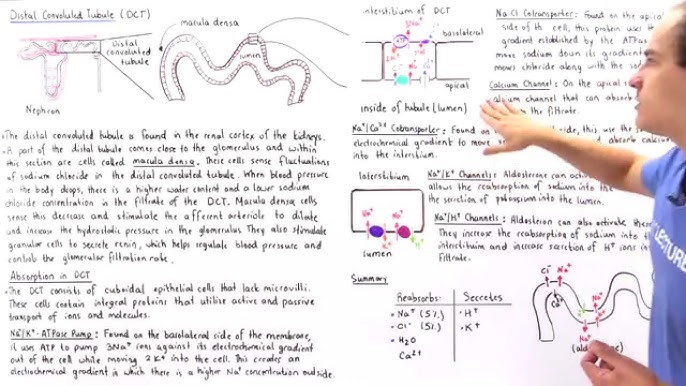 Distal Convoluted Tubule (DCT)
macula densa
Distal
convoluted
tubule
lumen
Nephron
• The distal convoluted tubule is found in the renal cortex of the kidneys.
• A part of the distal tubule comes close to the glomerulus and within
this section are cells called macula densa. These cells sense fluctuations
of sodium chloride in the distal convoluted tubule. When blood pressure
in the body drops, there is a higher water content and a lower sodium
chloride concentration in the filtrate of the DCT. Macula densa cells
sense this decrease and stimulate the afferent arteriole to dilate
and increase the hydrostatic pressure in the glomerulus. They also stimulate
granular cells to secrete renin, which helps regulate blood pressure and
controls the glomerular filtration rate.
Absorption in DCT
• The DCT consists of cuboidal epithelial cells that lack microvilli.
These cells contain integral proteins that utilize active and passive
transport of ions and molecules.
Na⁺/K⁺-ATPase Pump: Found on the basolateral side of the membrane,
it uses ATP to pump 3Na⁺ ions against its electrochemical gradient
out of the cell while moving 2K⁺ into the cell. This creates an
electrochemical gradient in which there is a higher Na⁺ concentration outside.
interstitium of DCT
3Na⁺
basolateral
apical
inside of tubule (lumen)
Na-Cl Cotransporter: Found on the apical
side of the cell, this protein uses the
gradient established by the ATPase
move sodium down its gradient
moves chloride along with the sod
Calcium Channel: On the apical
calcium channel that can absorb
the filtrate.
Na⁺/Ca²⁺ Cotransporter: Found on side, this uses the
electrochemical gradient to move and absorb calcium
into the interstitium.
Interstitium
Na⁺
Na⁺
K⁺
H⁺
lumen
Na⁺/K⁺ Channels: Aldosterone can acti
allows the reabsorption of sodium into the
the secretion of potassium into the lumen.
Na⁺/H⁺ Channels: Aldosteron can also activate these
They increase the reabsorption of sodium into the
interstitium and increase secretion of H⁺ ions in
filtrate.
Summary
Reabsorbs: Secretes
• Na⁺ (5%) • H⁺
• Cl⁻ (5%) • K⁺
• H₂O
Ca²⁺
Cl⁻ Na⁺
Ca²⁺
Na⁺
K⁺
Na⁺
LECTURE